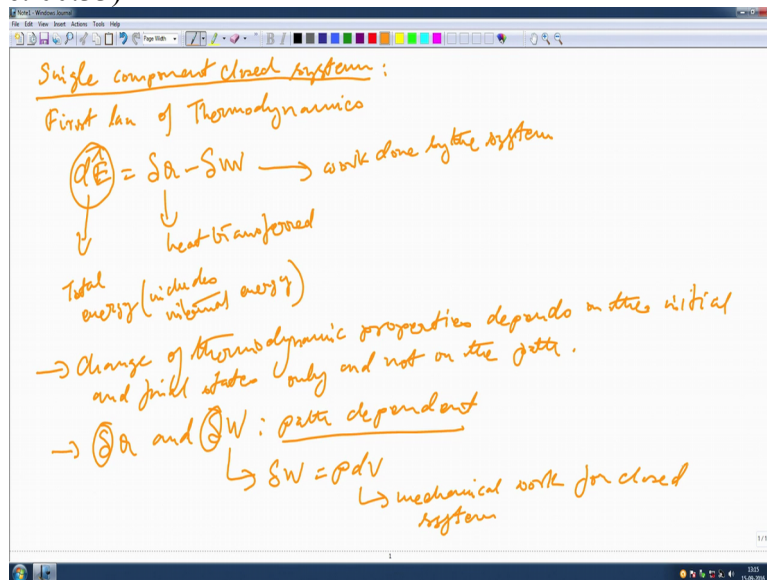 Note1 - Windows Journal
File Edit View Insert Actions Tools Help
Page Width
B I
Single component closed system :
First law of Thermodynamics
dÊ = δQ - δW → work done by the system
heat transferred
Total
energy (includes
internal energy)
→ Change of thermodynamic properties depends on the initial
and final states only and not on the path.
→ δQ and δW : path dependent
δW = pdV
mechanical work for closed
system
1/1
1
13:15
15-09-2016